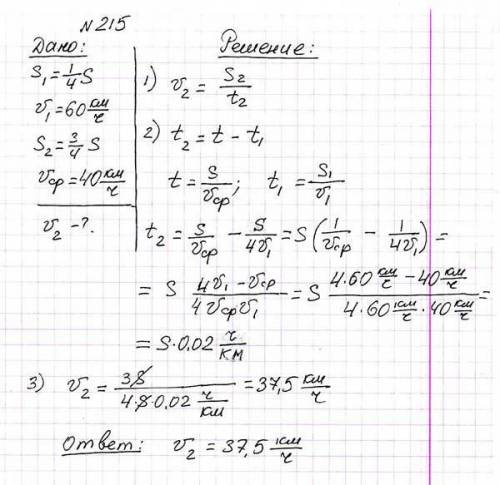 №215
Дано: Решение:
S₁=1/4 S
v₁=60 км/ч
S₂=3/4 S
vср=40 км/ч
v₂ - ?.
1) v₂ = S₂/t₂
2) t₂ = t - t₁
t = S/vср; t₁ = S₁/v₁
t₂ = S/vср - S/4v₁ = S(1/vср - 1/4v₁) =
= S (4v₁ - vср)/(4vср v₁) = S (4·60 км/ч - 40 км/ч)/(4·60 км/ч · 40 км/ч) =
= S·0.02 ч/км
3) v₂ = 3S/(4·S·0.02 ч/км) = 37,5 км/ч
Ответ: v₂ = 37,5 км/ч